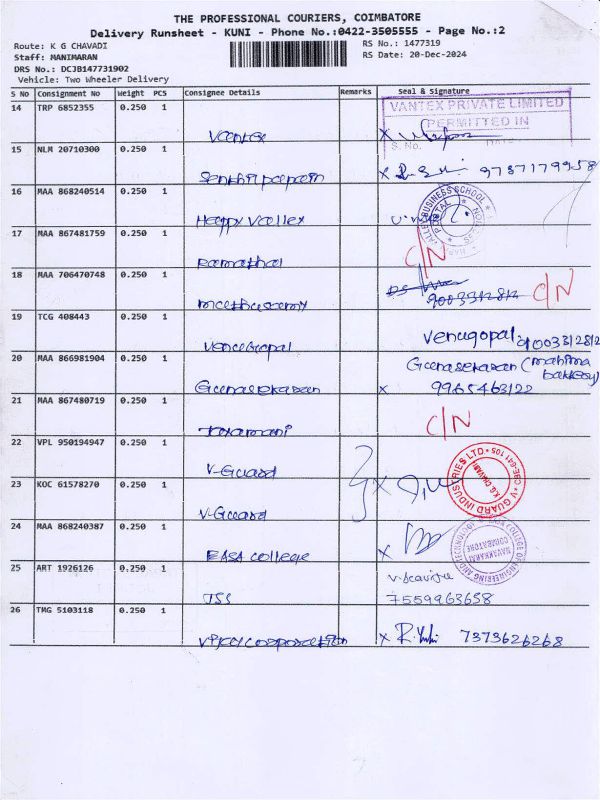 THE PROFESSIONAL COURIERS, COIMBATORE
Delivery Runsheet - KUNI - Phone No.:0422-3505555 - Page No.:2
Route: K G CHAVADI RS No.: 1477319
Staff: MANIMARAN RS Date: 20-Dec-2024
DRS No.: DCJB147731902
Vehicle: Two Wheeler Delivery
S No Consignment No Weight PCS Consignee Details Remarks Seal & Signature
14 TRP 6852355 0.250 1
VANTEX PRIVATE LIMITED
PERMITTED IN
S. No. DATE
Vantex X
15 NLM 20710300 0.250 1
X 9737179958
16 MAA 868240514 0.250 1
VALLEY BUSINESS SCHOOL
Happy Valley
17 MAA 867481759 0.250 1
C/N
Ramathal
18 MAA 706470748 0.250 1
9003312812 C/N
19 TCG 408443 0.250 1
Venugopal Venugopal 9003312812
20 MAA 866981904 0.250 1
Gunasekaran (mahima bakkery)
Gunasekaran X 9965463122
21 MAA 867480719 0.250 1
C/N
22 VPL 950194947 0.250 1
V-Guard
V GUARD INDUSTRIES LTD.
K.G. CHAVADI
CBE-641 105
23 KOC 61578270 0.250 1
X
V-Guard
24 MAA 868240387 0.250 1
COLLEGE OF ENGINEERING AND TECHNOLOGY
NAVAKKARAI
COIMBATORE
EASA college X
25 ART 1926126 0.250 1
JSS 7559963658
26 TMG 5103118 0.250 1
X 7373626268